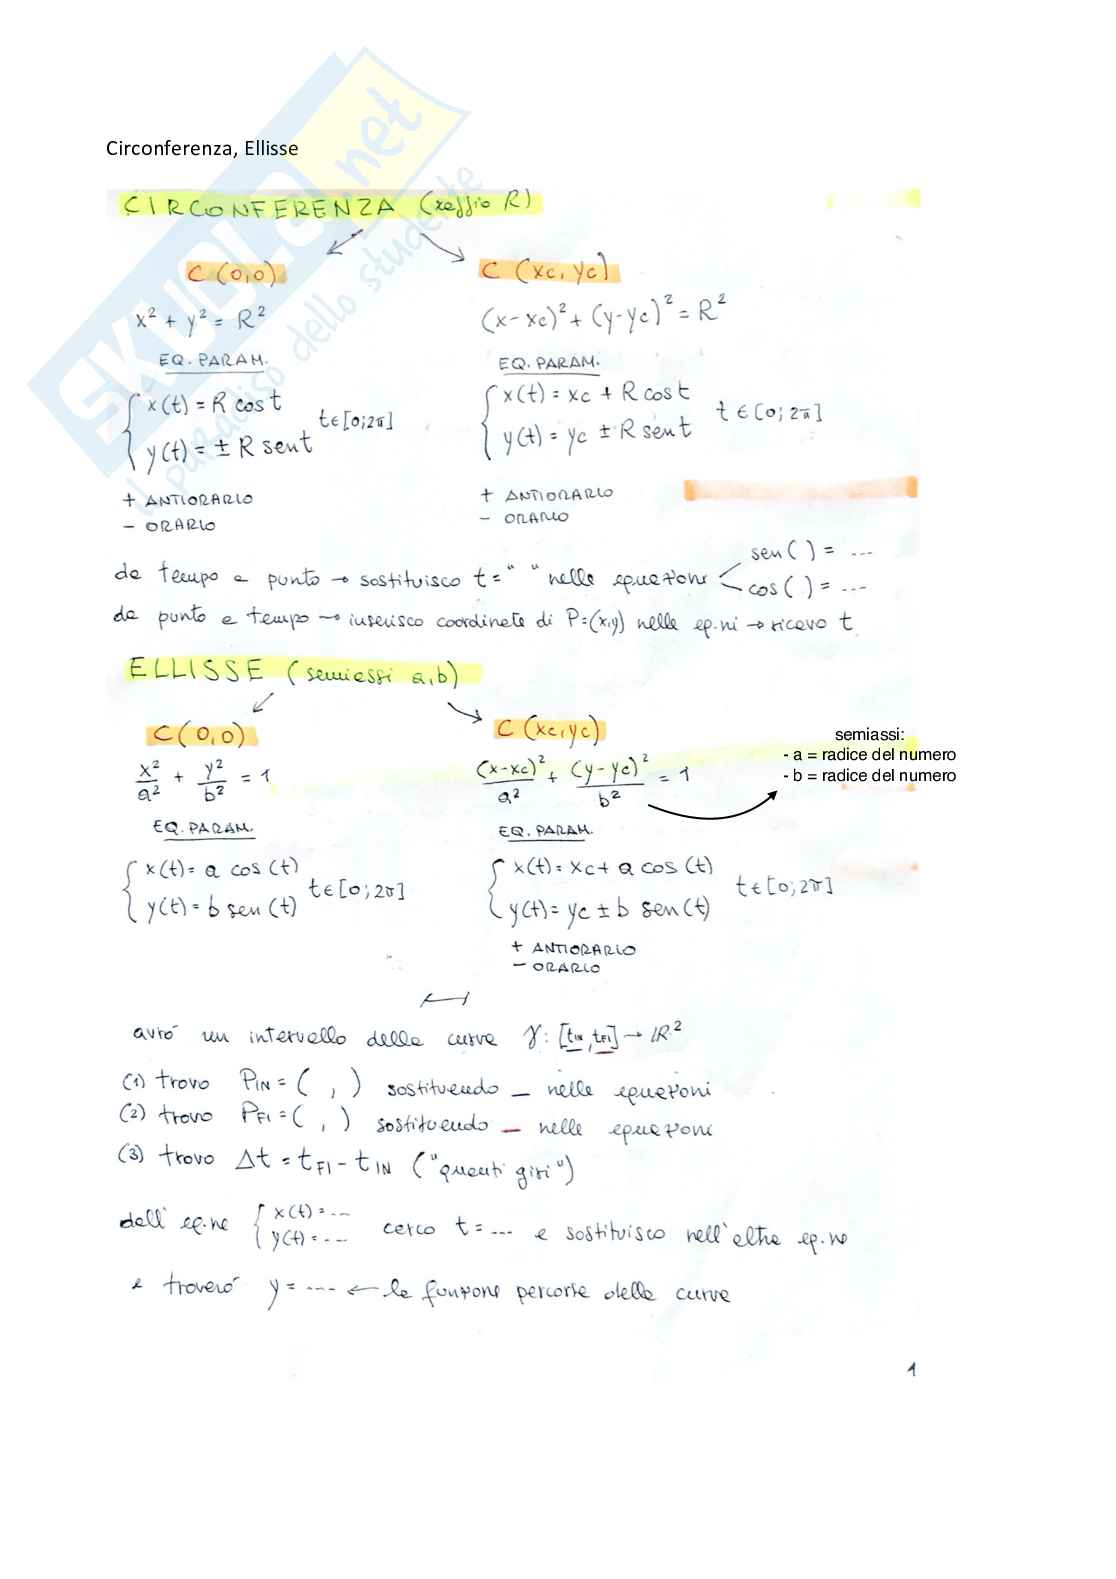 SKUOLA.net
il paradiso dello studente
Circonferenza, Ellisse
CIRCONFERENZA (raggio R)
C (0,0)
x² + y² = R²
EQ. PARAM.
{ x(t) = R cos t
y(t) = ± R sen t
t∈[0;2π]
+ ANTIORARIO
- ORARIO
C (xc, yc)
(x-xc)² + (y-yc)² = R²
EQ. PARAM.
{ x(t) = xc + R cos t
y(t) = yc ± R sen t
t ∈ [0; 2π]
+ ANTIORARIO
- ORARIO
da tempo a punto → sostituisco t = " " nelle equazioni sen ( ) = ...
cos ( ) = ...
da punto a tempo → inserisco coordinate di P=(x,y) nelle eq.ni → ricavo t
ELLISSE (semiassi a,b)
C (0,0)
x²/a² + y²/b² = 1
EQ. PARAM.
{ x(t) = a cos (t)
y(t) = b sen (t)
t∈[0;2π]
C (xc,yc)
(x-xc)²/a² + (y-yc)²/b² = 1
semiassi:
- a = radice del numero
- b = radice del numero
EQ. PARAM.
{ x(t) = xc + a cos (t)
y(t) = yc ± b sen (t)
t∈[0;2π]
+ ANTIORARIO
- ORARIO
avrò un intervallo della curva γ: [tIN, tFI] → ℝ²
(1) trovo PIN = ( , ) sostituendo _ nelle equazioni
(2) trovo PFI = ( , ) sostituendo _ nelle equazioni
(3) trovo Δt = tFI - tIN ("quanti giri")
dall' eq.ne { x(t) = ... y(t) = ... cerco t = ... e sostituisco nell'altra eq.ne
e troverò y = .... ← la funzione percorsa dalla curva
1